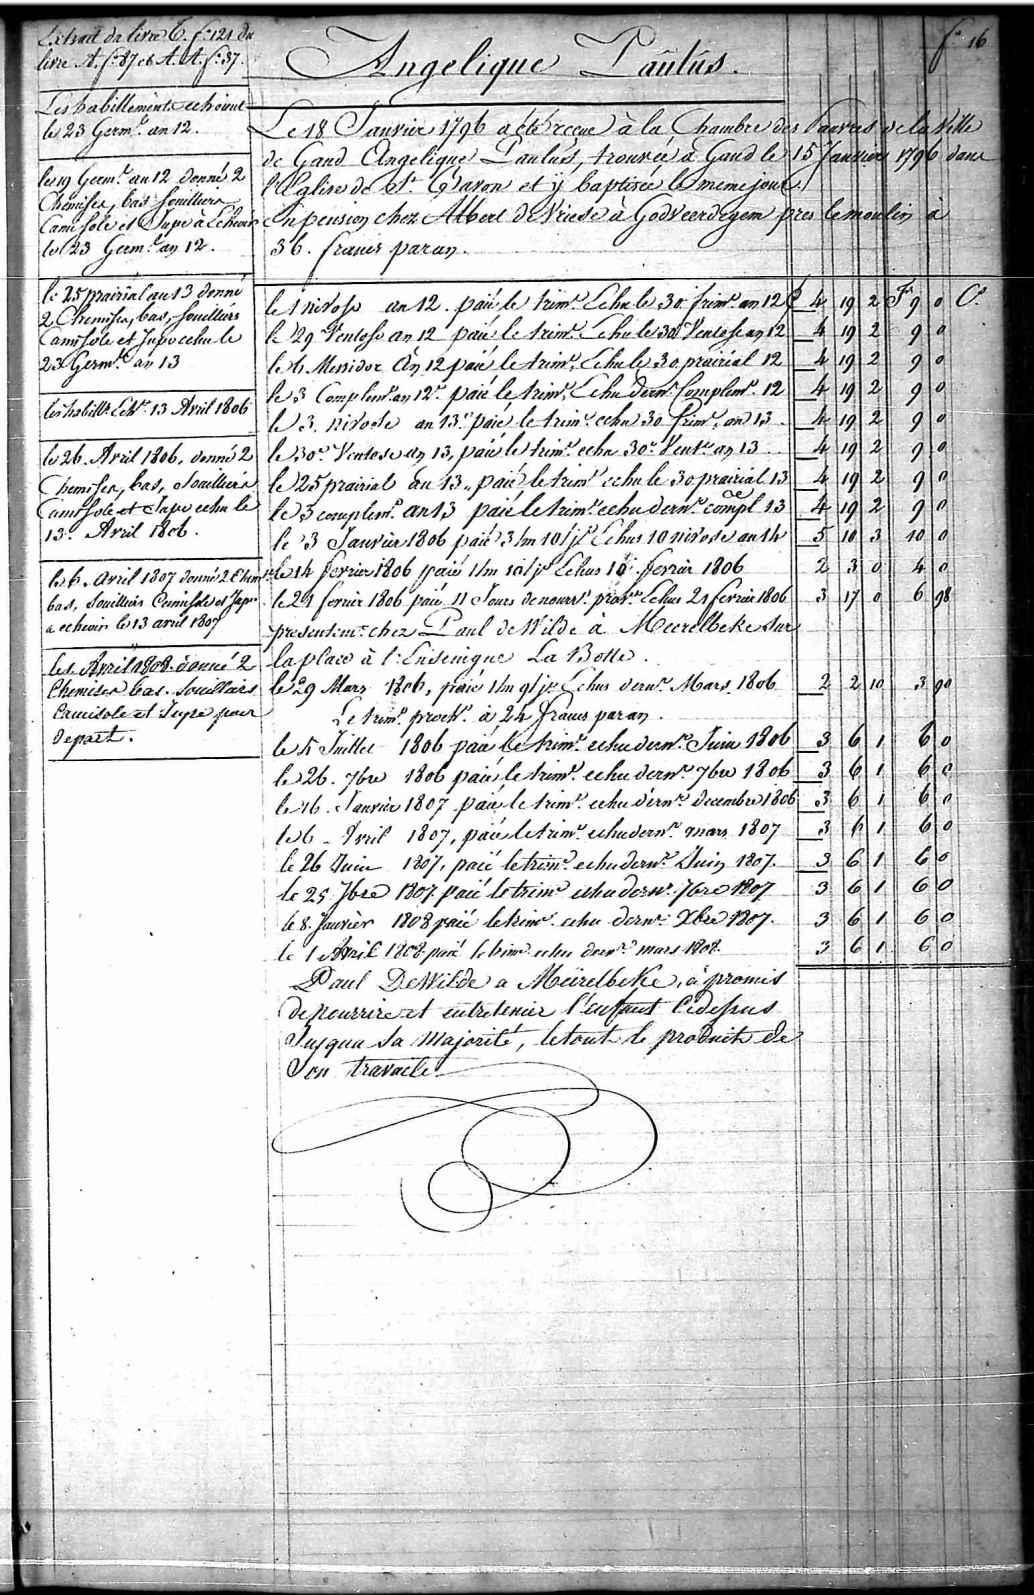 Extrait du livre C. f.° 121 du
livre A. f.° 87 et A.A. f.° 37.
Les habillements echoient
le 23 Germ.l an 12.
le 19 Germ.l an 12 donné 2
Chemises, bas, Souilliers
Camisole et Jupe à Echeoir
le 23 Germ.l an 12.
le 25 prairial an 13 donné
2 Chemises, bas, Souilliers
Camisole et Jupe echu le
23 Germ.l an 13
les habill.s Ech.t 13 Avril 1806
le 26. Avril 1806. donné 2
Chemises, bas, Souilliers
Camisole et Jupe echu le
13. Avril 1806.
le 6. avril 1807 donné 2 Chem.
bas, Souilliers Camisole et Jupe
a echeoir le 13 avril 1807
le 1 Avril 1808. donné 2
Chemises bas. Souilliers
Camisole et Jupe pour
depart.
f.° 16
Angelique Paulus.
Le 18 Janvier 1796 a été reçue à la Chambre des Pauvres de la Ville
de Gand Angelique Paulus, trouvée à Gand le 15 Janvier 1796 dans
l'Eglise de St. Bavon et ÿ baptisée le meme jour.
En pension chez Albert DeVriese à Godveerdegem pres le moulin à
36. francs par an.
le 1 nivose an 12. paié le trim.e Echu le 30. frim.e an 12 £ 4 19 2 F.s 9 0 C.s
le 29 Ventose an 12 paié le trim.e Echu le 30 Ventose an 12 4 19 2 9 0
le 6 Messidor An 12 paié le trim.e Echu le 30 prairial 12 4 19 2 9 0
le 3 Complem.e an 12.e paié le trim.e Echu dern.r Complem.e 12 4 19 2 9 0
le 3. nivose an 13.e paié le trim.e echu 30 frim.e an 13 4 19 2 9 0
le 30.e Ventose an 13, paié le trim.e echu 30.e Vent.e an 13 4 19 2 9 0
le 25 prairial an 13. paié le trim.e echu le 30 prairial 13 4 19 2 9 0
le 3 complem.e an 13 paié le trim.e echu dern.r compl.e 13 4 19 2 9 0
le 3 Janvier 1806 paié 3 1m 10 1j.s Echus 10 nivose an 14 5 10 3 10 0
le 14 fevrier 1806 paié 1 1m 10 1j.s Echus 10 fevrier 1806 2 3 0 4 0
le 21 fevrier 1806 paié 11 Jours de nourr.e prov.e Echus 21 fevrier 1806 3 17 0 6 98
presentem.t chez Paul de Wilde à Meerelbeke sur
la place à l'Enseigne La Botte.
le 29 Mars 1806, paié 1 1m 9 1j.s Echus dern.r Mars 1806 2 2 10 3 90
Le trim.e proch.n à 24 francs par an.
le 5 Juillet 1806 paié le trim.e echu dern.r Juin 1806 3 6 1 6 0
le 26. 7bre 1806 paié le trim.e echu dern.r 7bre 1806 3 6 1 6 0
le 16. Janvier 1807 paié le trim.e echu dern.r decembre 1806 3 6 1 6 0
le 6 Avril 1807, paié le trim.e echu dern.r mars 1807 3 6 1 6 0
le 26 Juin 1807, paié le trim.e echu dern.r Juin 1807. 3 6 1 6 0
le 25 7bre 1807 paié le trim.e echu dern.r 7bre 1807 3 6 1 6 0
le 8. Janvier 1808 paié le trim.e echu dern.r Xbre 1807. 3 6 1 6 0
le 1 Avril 1808 paié le trim.e echu dern.r mars 1808. 3 6 1 6 0
Paul DeWilde a Meirelbeke, à promis
de nourrir et entretenir l'enfant Cidessus
Jusqua Sa Majorité, le tout le produit de
Son travaile